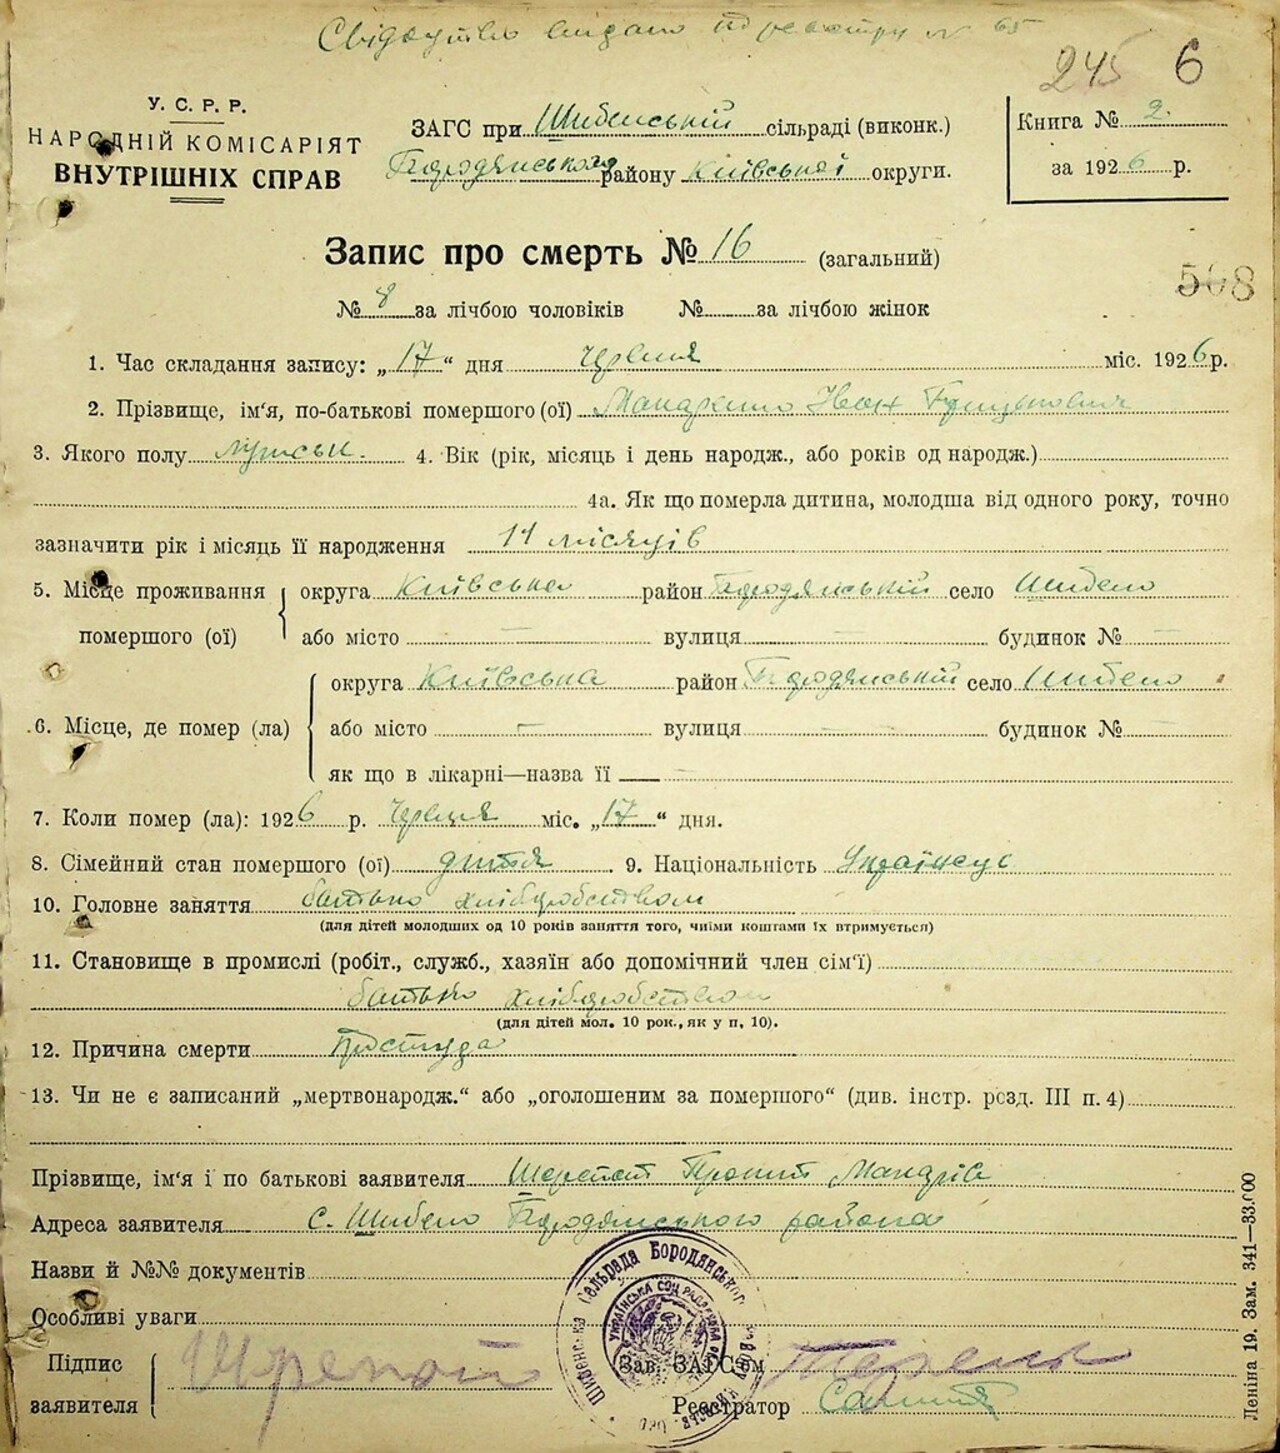 Свідоцтво видано по реєстру № 65
245 6
У. С. Р. Р.
НАРОДНІЙ КОМІСАРІЯТ
ВНУТРІШНІХ СПРАВ
ЗАГС при Шибенській сільраді (виконк.)
Бородянського району Київської округи.
Книга № 2.
за 1926 р.
Запис про смерть № 16 (загальний)
508
№ 8 за лічбою чоловіків № за лічбою жінок
1. Час складання запису: „17“ дня Червня міс. 1926 р.
2. Прізвище, ім'я, по-батькові помершого (ої) Макаренко Іван Грицькович
3. Якого полу мужськ. 4. Вік (рік, місяць і день народж., або років од народж.)
4а. Як що померла дитина, молодша від одного року, точно
зазначити рік і місяць її народження 11 місяців
5. Місце проживання помершого (ої)
округа Київська район Бородянський село Шибено
або місто — вулиця — будинок № —
6. Місце, де помер (ла)
округа Київська район Бородянський село Шибено
або місто — вулиця — будинок № —
як що в лікарні—назва її —
7. Коли помер (ла): 1926 р. Червня міс. „17“ дня.
8. Сімейний стан помершого (ої) дитя 9. Національність Українець
10. Головне заняття батько хліборобством
(для дітей молодших од 10 років заняття того, чиїми коштами їх втримується)
11. Становище в промислі (робіт., служб., хазяїн або допомічний член сім'ї)
батько хліборобством
(для дітей мол. 10 рок., як у п. 10).
12. Причина смерти Простуда
13. Чи не є записаний „мертвонародж.“ або „оголошеним за помершого“ (див. інстр. розд. III п. 4)
Прізвище, ім'я і по батькові заявителя Шерепат
Адреса заявителя С. Шибено Бородянського района
Назви й №№ документів
Особливі уваги
Підпис заявителя
Зав. ЗАГС'ом
Реєстратор
Шибенська Сельрада Бородянськог
УКРАЇНСЬКА СОЦ РАДЯНСЬКА
Леніна 19. Зам. 341—33.000